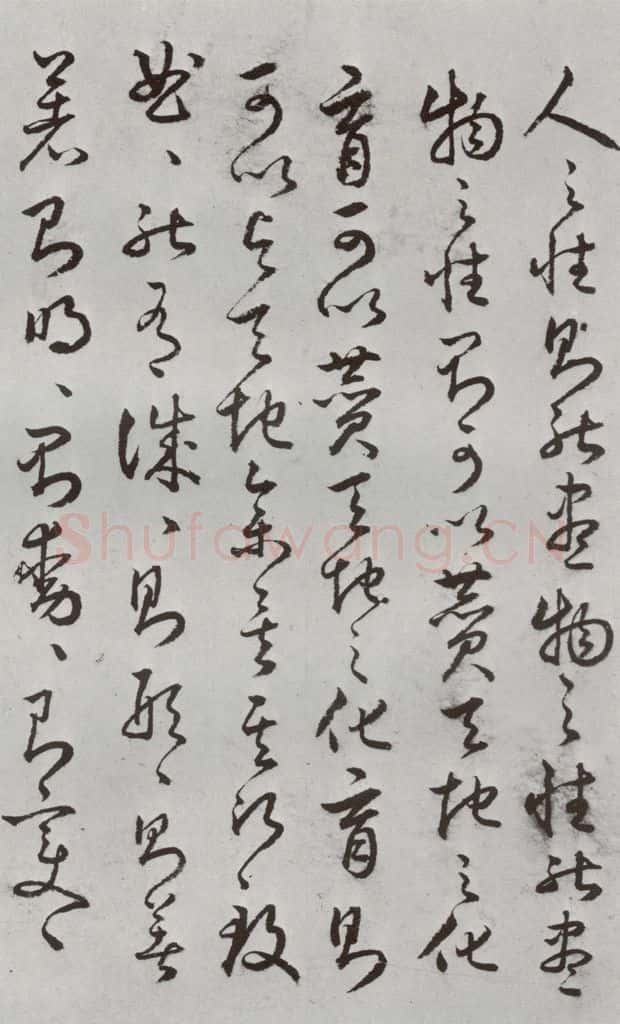 人之性則能盡物之性能盡
物之性則可以贊天地之化
育可以贊天地之化育則
可以與天地參矣其次、致
曲、能有誠、則形、則著
著則明、則動、則變、
Shufawang.CN